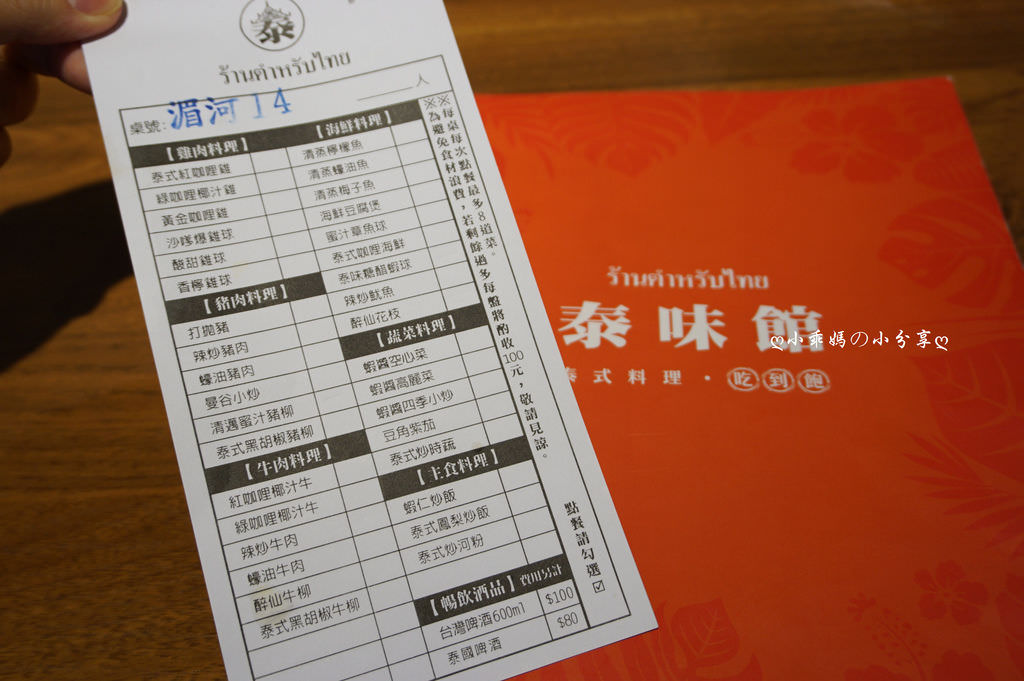 泰
ร้านตำหรับไทย
桌號: 湄河 14 ＿＿人
【雞肉料理】
泰式紅咖哩雞
綠咖哩椰汁雞
黃金咖哩雞
沙嗲爆雞球
酸甜雞球
香檸雞球
【豬肉料理】
打拋豬
辣炒豬肉
蠔油豬肉
曼谷小炒
清邁蜜汁豬柳
泰式黑胡椒豬柳
【牛肉料理】
紅咖哩椰汁牛
綠咖哩椰汁牛
辣炒牛肉
蠔油牛肉
醉仙牛柳
泰式黑胡椒牛柳
【海鮮料理】
清蒸檸檬魚
清蒸蠔油魚
清蒸梅子魚
海鮮豆腐煲
蜜汁章魚球
泰式咖哩海鮮
泰味糖醋蝦球
辣炒魷魚
醉仙花枝
【蔬菜料理】
蝦醬空心菜
蝦醬高麗菜
蝦醬四季小炒
豆角紫茄
泰式炒時蔬
【主食料理】
蝦仁炒飯
泰式鳳梨炒飯
泰式炒河粉
【暢飲酒品】費用另計
台灣啤酒600ml $100
泰國啤酒 $80
※每桌每次點餐最多8道菜。
※為避免食材浪費，若剩餘過多每盤將酌收100元，敬請見諒。
點餐請勾選☑
ร้านตำหรับไทย
泰味館
泰式料理・吃到飽
ღ小乖媽の小分享ღ